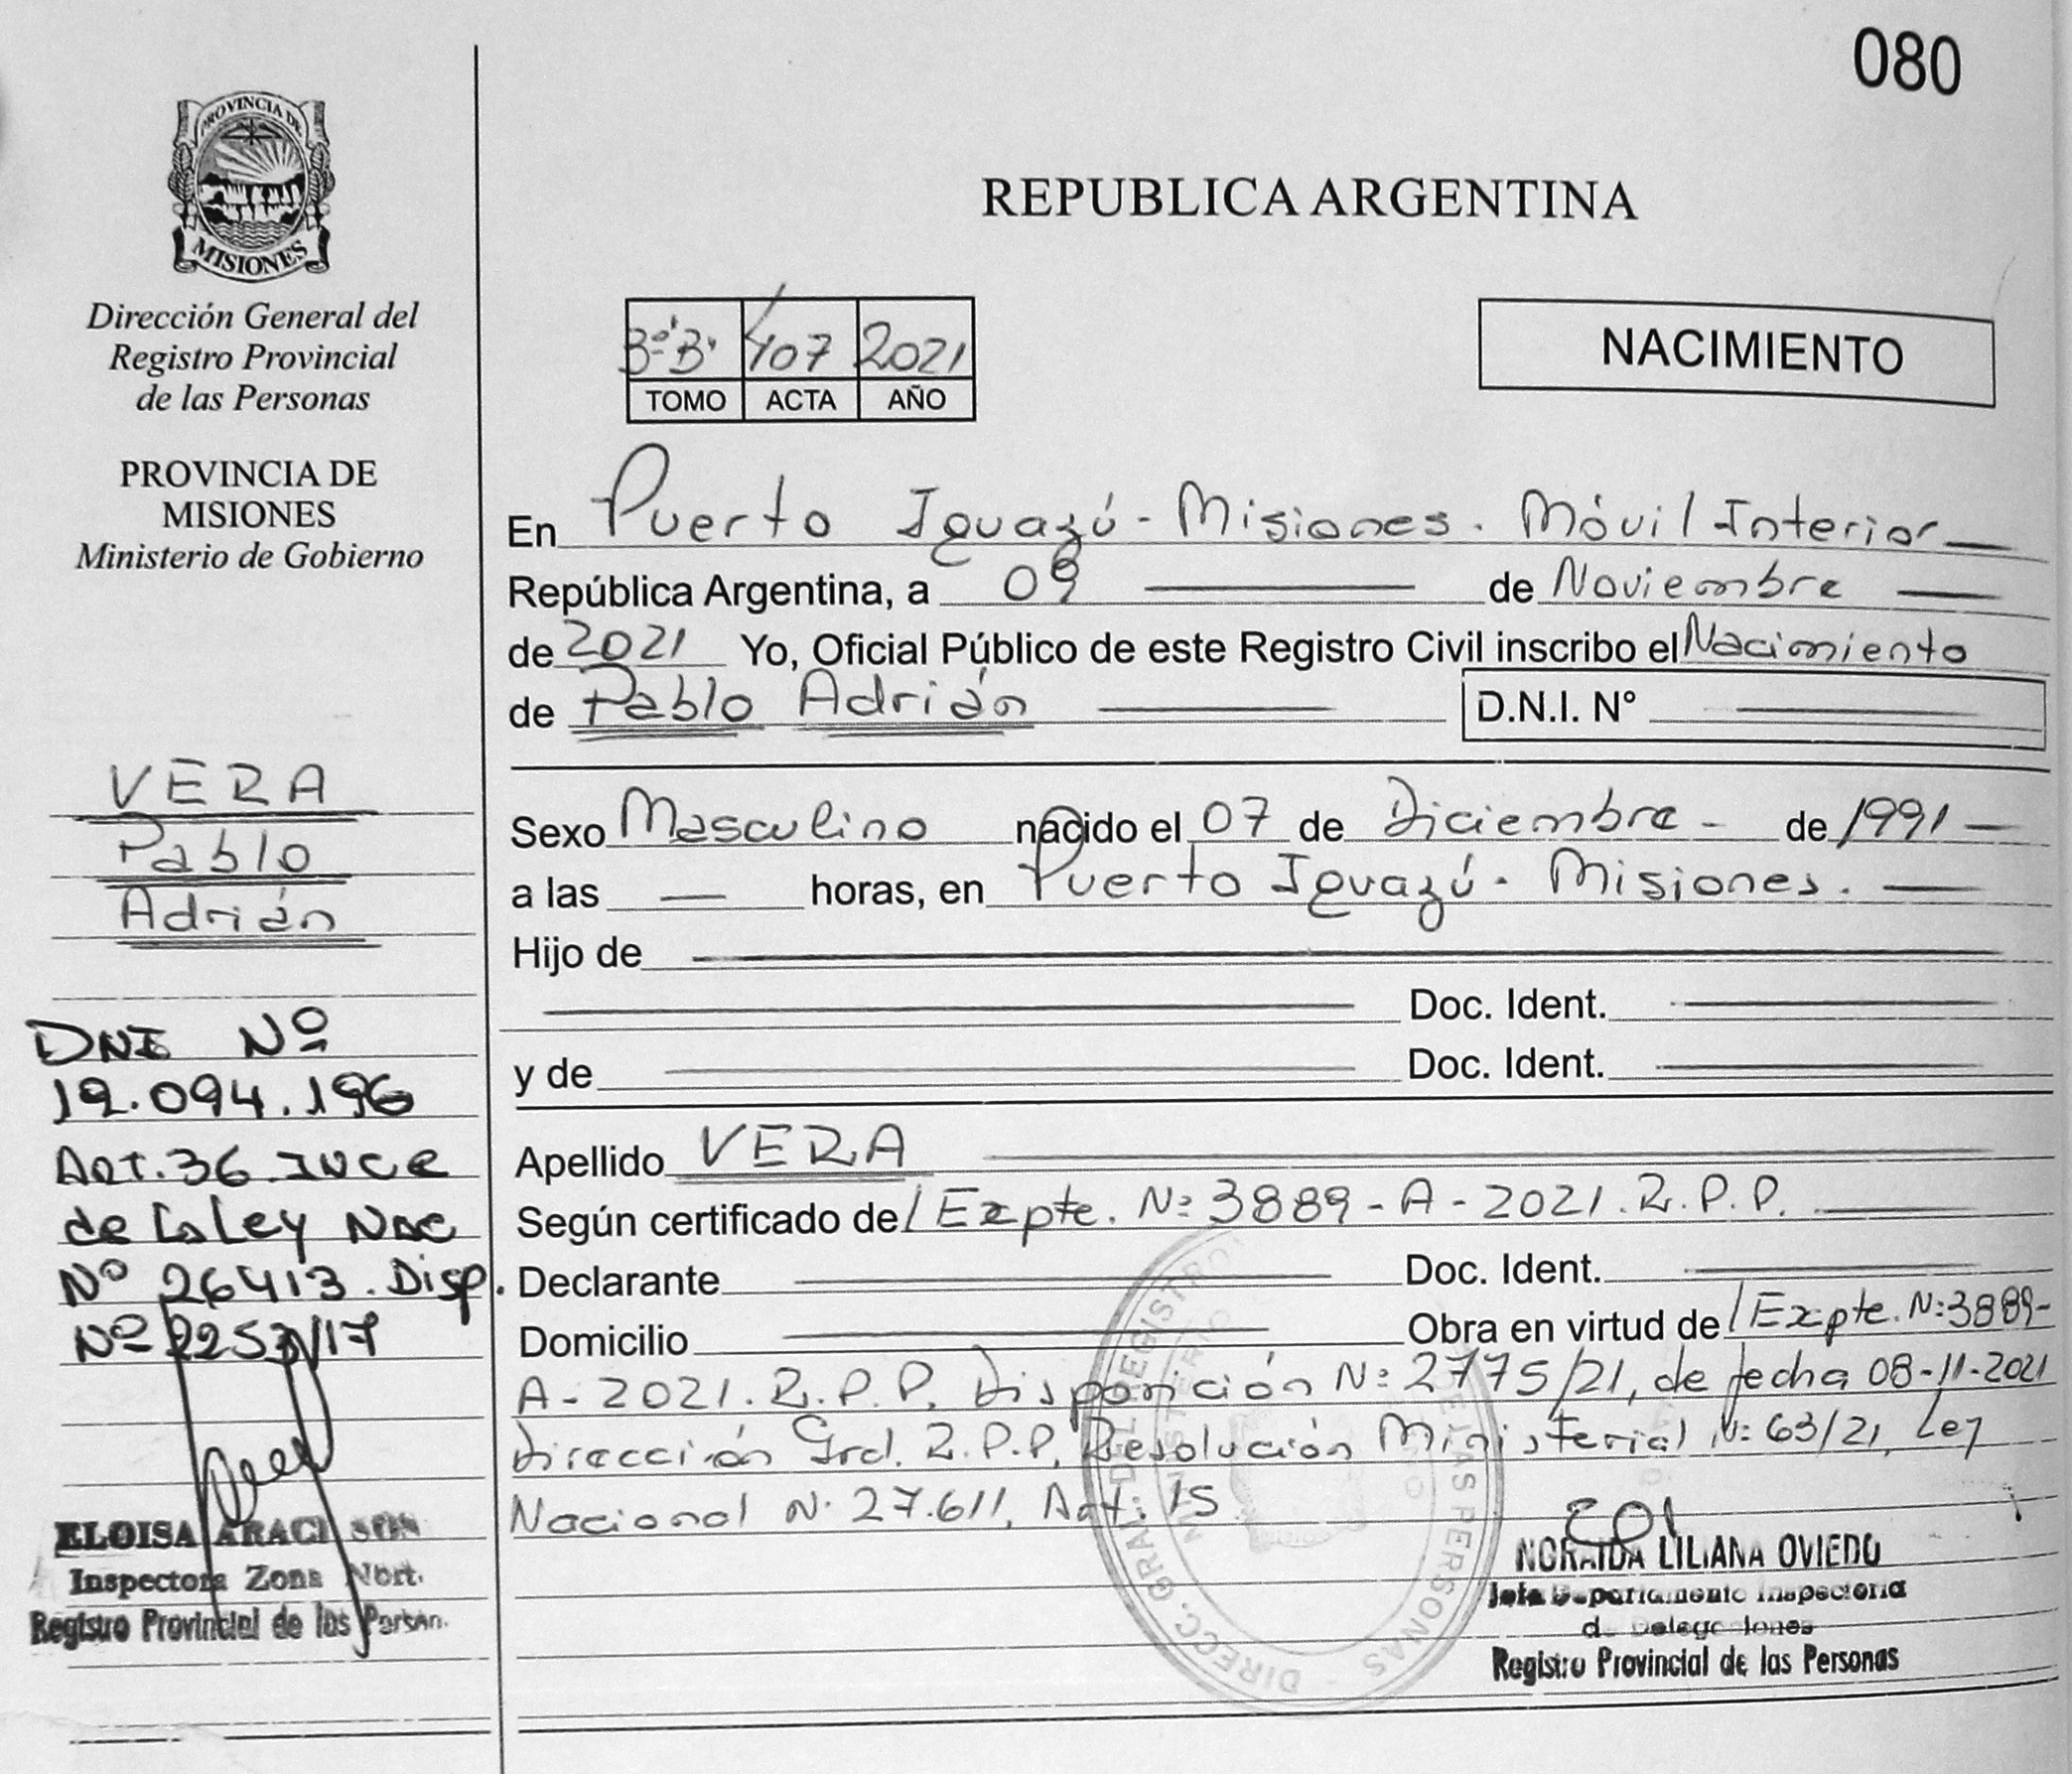 080
PROVINCIA DE
MISIONES
Dirección General del
Registro Provincial
de las Personas
PROVINCIA DE
MISIONES
Ministerio de Gobierno
REPUBLICA ARGENTINA
3º"B" 407 2021
TOMO ACTA AÑO
NACIMIENTO
En Puerto Iguazú - Misiones. Móvil Interior
República Argentina, a 09 de Noviembre
de 2021 Yo, Oficial Público de este Registro Civil inscribo el Nacimiento
de Pablo Adrián D.N.I. N°
VERA
Pablo
Adrián
Sexo Masculino nacido el 07 de Diciembre - de 1991
a las — horas, en Puerto Iguazú. Misiones.
Hijo de
Doc. Ident.
y de Doc. Ident.
DNI Nº
19.094.196
Art. 36 INC e
de la Ley Nac
Nº 26413. Disp.
Nº 2253/17
Apellido VERA
Según certificado de / Expte. Nº 3889 - A - 2021. R. P. P.
Declarante Doc. Ident.
Domicilio Obra en virtud de / Expte. Nº 3889-
A - 2021. R. P. P. Disposición Nº 2775/21, de fecha 08-11-2021
Dirección Gral. R. P. P. Resolución Ministerial Nº 63/21, Ley
Nacional Nº 27.611, Art. 15
ELOISA
Inspectora Zona Nort.
Registro Provincial de las Person.
DIRECC. GRAL. DEL REGISTRO DE LAS PERSONAS
NORAIDA LILIANA OVIEDO
Jefa Departamento Inspectoria
de Delegaciones
Registro Provincial de las Personas